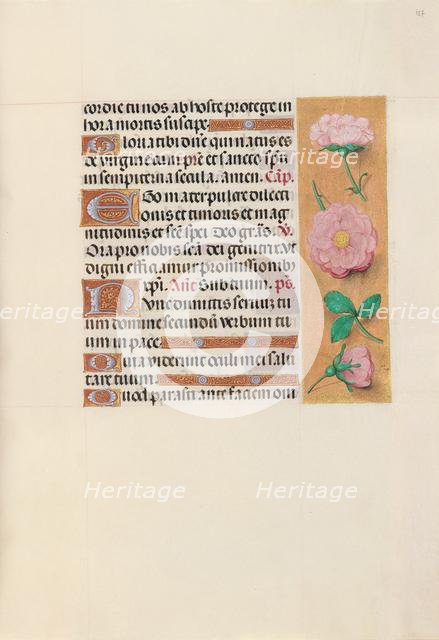 cordie tu nos ab hoste protege in
hora mortis suscipe
Gloria tibi dñe qui natus es
de virgine cum pr̃e et sancto sp̃u
in sempiterna secula. amen. Cap̃.
Ego mater pulcre dilecti
onis et timoris et mag
nitudinis et sc̃e spei Deo gr̃as. V.
Ora pro nobis sc̃a dei genitrix Vt
digni efficiamur promissionibus
xp̃i. An̄e Sub tuum. ps̃.
Nunc dimittis seruum tu
um domine secundum verbum tu
um in pace
Quia viderunt oculi mei salu
tare tuum
Quod parasti ante faciem om
Heritage
Heritage
Heritage
Heritage
Heritage
Heritage